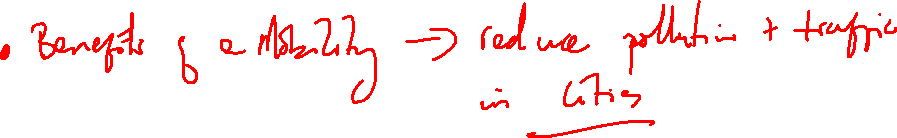 • Benefits of e Mobility → reduce pollution + traffic
in cities